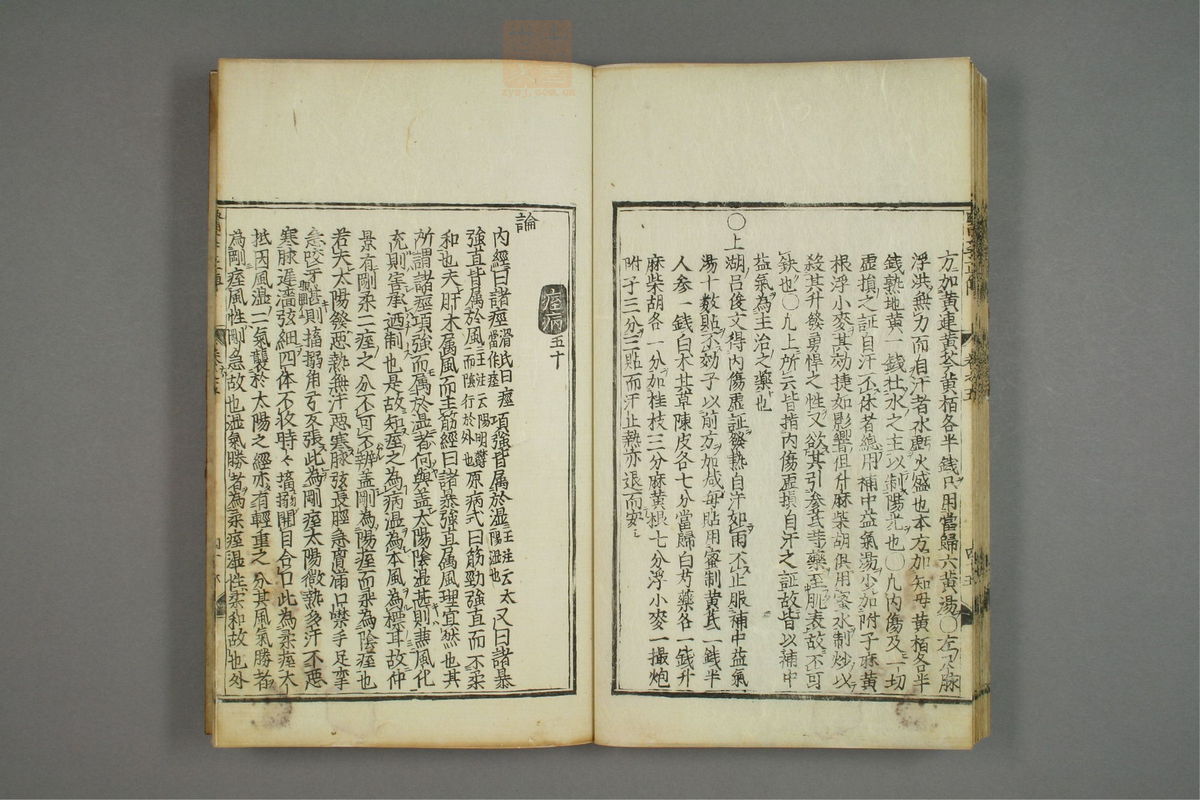 方加黄連黄芩黄栢各半錢只用當歸六黄湯〇右尺脉
浮洪無力而自汗者水虧火盛也本方加知母黄栢各半
錢熟地黄一錢壮水之主以制陽光也〇凢内傷及一切
虚損之証自汗不休者總用補中益氣湯少加附子麻黄
根浮小麥其効捷如影響但升麻柴胡俱用蜜水制炒以
殺其升發勇悍之性又欲其引參芪等藥至肌表故不可
缺也〇凢上所云皆指内傷虚損自汗之証故皆以補中
益氣為主治之藥也
〇上湖吕俊文得内傷虚証發熱自汗如雨不止服補中益氣
湯十數貼不効予以前方加减每貼用蜜制黄芪一錢半
人參一錢白术甘草陳皮各七分當歸白芍藥各一錢升
麻柴胡各一分加桂枝三分麻黄根七分浮小麥一撮炮
附子三分三貼而汗止熱亦退而安
痙病五十
論
内經曰諸痙滑氏曰痙當作痓項強皆属於湿王注云太陽湿也又曰諸暴
強直皆属於風王注云陽明欝而陰行於外也原病式曰筋勁強直而不柔
和也夫肝木属風而主筋經曰諸暴強直属風理宜然也其
所謂諸痙項強而属於湿者何與盖太陽陰湿甚則兼風化
亢則害承迺制也是故知痙之為病湿為本風為標耳故仲
景有剛柔二痙之分不可不辨盖剛為陽痙而柔為陰痙也
若夫太陽發熱無汗惡寒脉弦長脛急胷滿口噤手足攣
急咬牙甚則搐搦角弓反張此為剛痙太陽微熱多汗不惡
寒脉遅濇弦細四体不收時々搐搦開目合口此為柔痙大
抵因風湿二氣襲於太陽之經亦有輕重之分其風氣勝者
為剛痙風性剛急故也湿氣勝者為柔痙湿性柔和故也外